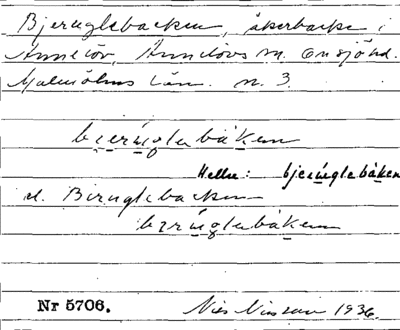 Bjeruglebacken, åkerbacke i
Annelöv, Annelövs sn. Onsjöhd.
Malmöhus län. n. 3.
bi̯erúglebákem
Heller: bjerúnglebáken
el. Beruglebacken
berúnglebákem
Nr 5706.
Nils Nilsson 1936.